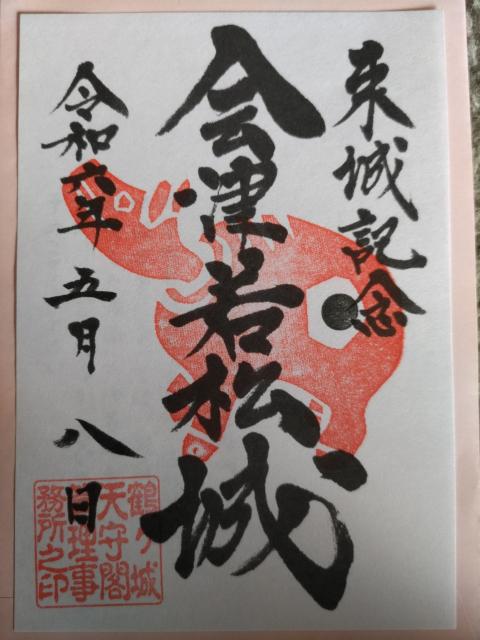 来城記念
会津若松城
令和六年 五月 八日
鶴ヶ城
天守閣
管理事
務所之印